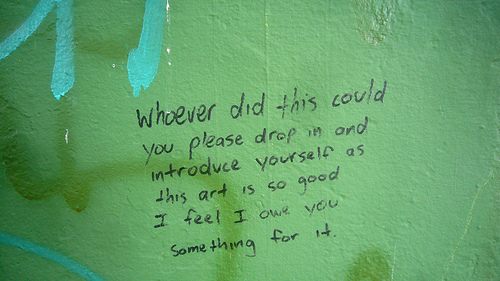 Whoever did this could
you please drop in and
introduce yourself as
this art is so good
I feel I owe you
something for it.